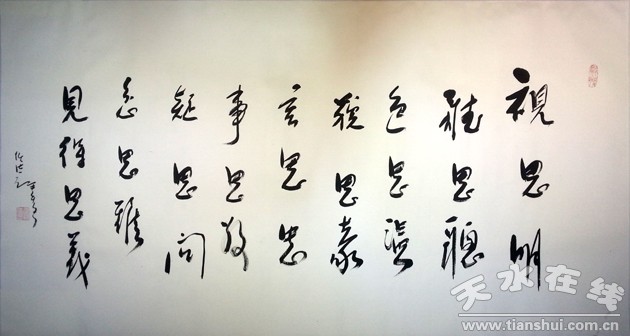 視思明
聽思聰
色思温
貌思恭
言思忠
事思敬
疑思問
忿思難
見得思義
天水在线
www.tianshui.com.cn